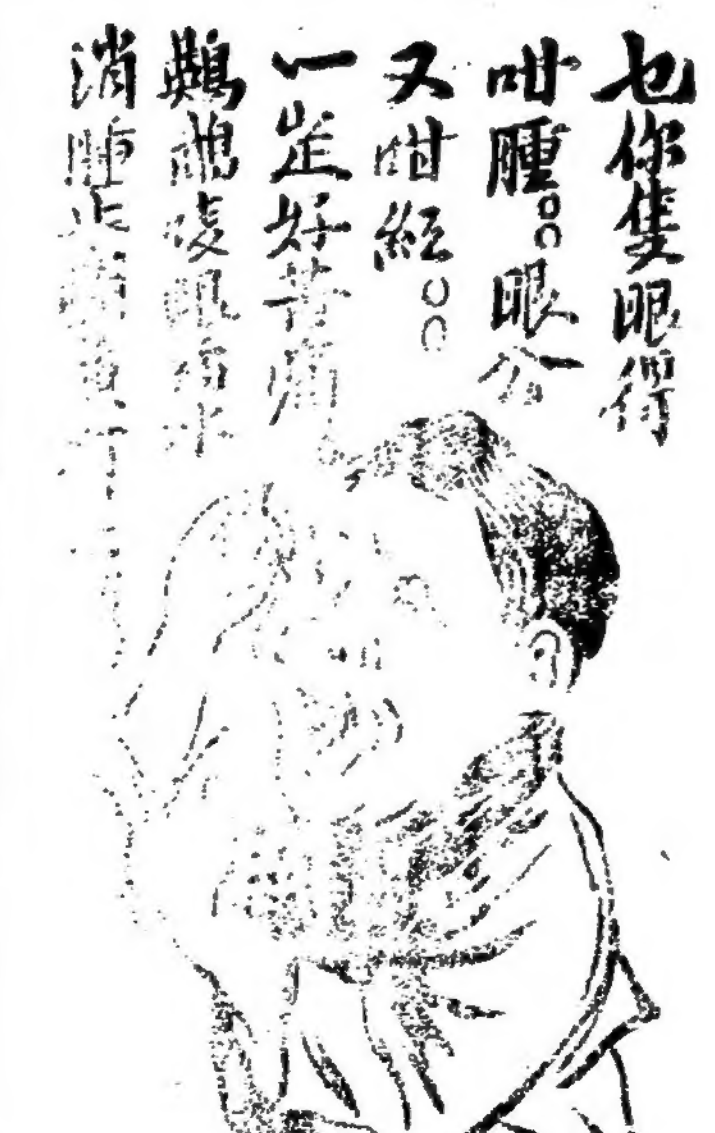 乜你隻眼得
咁腫○○眼公
又咁紅○○
一定好苦痛
鷓鴣唛眼藥水
消腫止痛